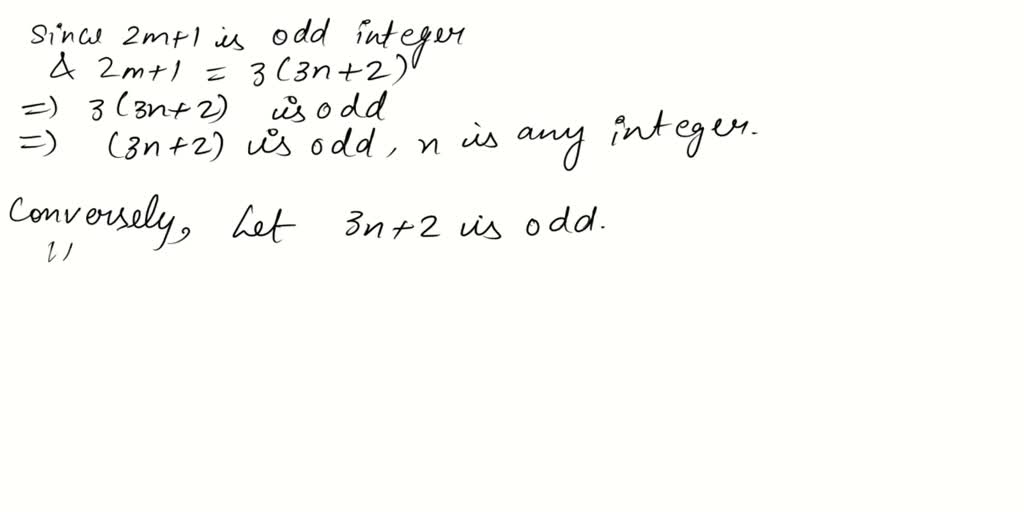 Since 2m+1 is odd integer
& 2m+1 = 3(3n+2)
=) 3(3n+2) is odd
=) (3n+2) is odd, n is any integer.
Conversely, Let 3n+2 is odd.